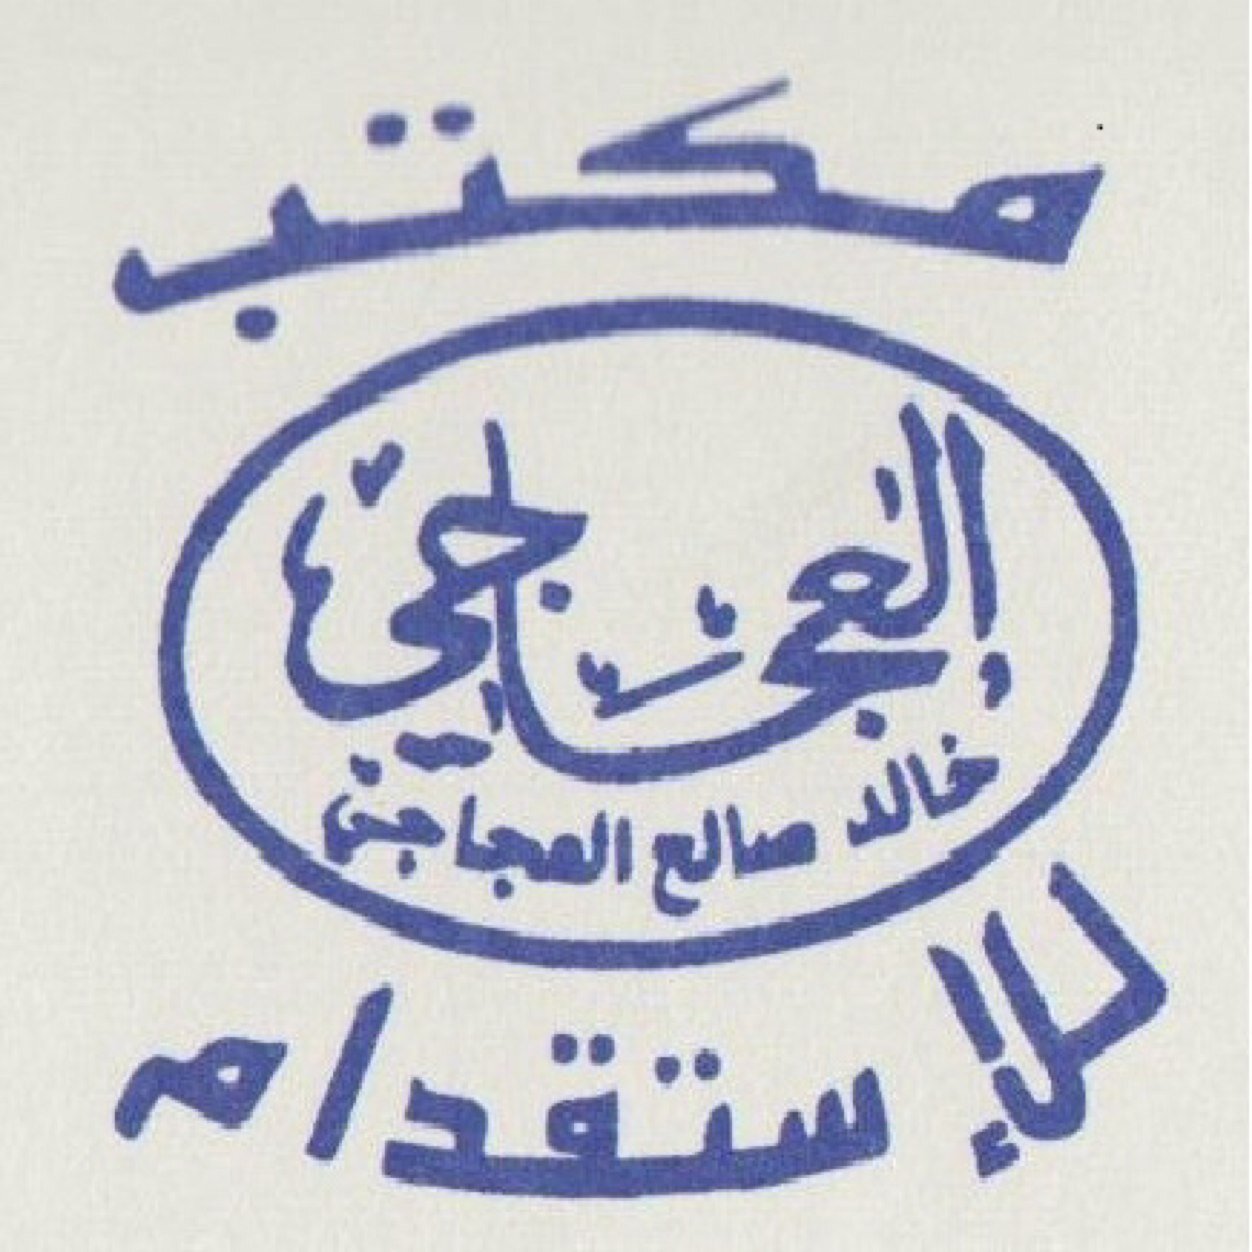 مكتب
العجاجي
خالد صالح العجاجي
للإستقدام